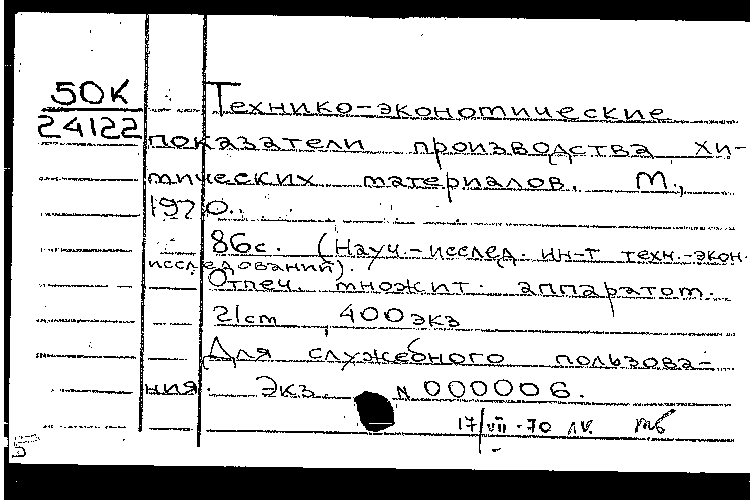 50К
24122
Технико-экономические
показатели производства хи-
мических материалов. М.,
1970.
86с. (Науч.-исслед. ин-т техн.-экон.
исследований).
Отпеч. множит. аппаратом.
21см 400экз
Для служебного пользова-
ния. Экз. N 000006.
17/VII-70 ЛV.
5